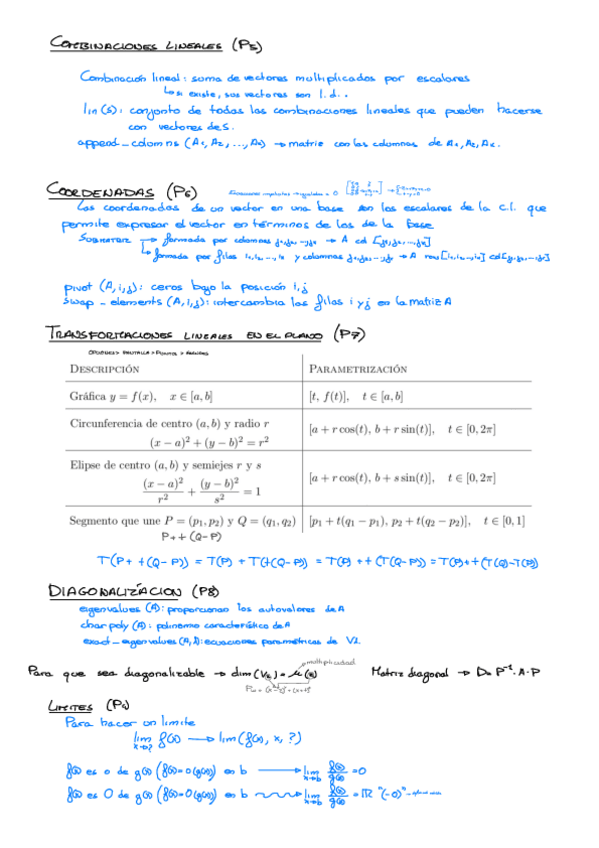 COMBINACIONES LINEALES (P5)
Combinación lineal: suma de vectores multiplicados por escalares
↳ si existe, sus vectores son l.d..
lin(S): conjunto de todas las combinaciones lineales que pueden hacerse
con vectores de S.
append_columns (A1, A2, ..., An) → matriz con las columnas de A1, A2, An.
COORDENADAS (P6)
Las coordenadas de un vector en una base son los escalares de la c.l. que
permite expresar el vector en términos de los de la base
SUBMATRIZ → formada por columnas j1, j2, ..., jn → A col [j1, j2, ..., jn]
↳ formada por filas i1, i2, ..., in y columnas j1, j2, ..., jn → A row [i1, i2, ..., in] col [j1, j2, ..., jn]
pivot (A, i, j): ceros bajo la posición i, j
swap_elements (A, i, j): intercambia las filas i y j en la matriz A
TRANSFORMACIONES LINEALES EN EL PLANO (P7)
DESCRIPCIÓN PARAMETRIZACIÓN
Gráfica y = f(x), x ∈ [a, b] [t, f(t)], t ∈ [a, b]
Circunferencia de centro (a, b) y radio r
(x − a)² + (y − b)² = r² [a + r cos(t), b + r sin(t)], t ∈ [0, 2π]
Elipse de centro (a, b) y semiejes r y s
(x − a)²/r² + (y − b)²/s² = 1 [a + r cos(t), b + s sin(t)], t ∈ [0, 2π]
Segmento que une P = (p1, p2) y Q = (q1, q2) [p1 + t(q1 − p1), p2 + t(q2 − p2)], t ∈ [0, 1]
P + t (Q-P)
T(P + t(Q-P)) = T(P) + T(t(Q-P)) = T(P) + t(T(Q-P)) = T(P) + t(T(Q)-T(P))
DIAGONALIZACION (P8)
eigenvalues (A): proporcionan los autovalores de A
charpoly (A): polinomio característico de A
exact_eigenvalues (A, λ): ecuaciones paramétricas de Vλ.
multiplicidad
Para que sea diagonalizable → dim(Vα) = μ(α) Matriz diagonal → D = P⁻¹·A·P
LIMITES (P4)
Para hacer un limite
lim x→? f(x) → lim(f(x), x, ?)
f(x) es o de g(x) (f(x) = o(g(x))) en b → lim x→b f(x)/g(x) = 0
f(x) es O de g(x) (f(x) = O(g(x))) en b → lim x→b f(x)/g(x) = ℝ